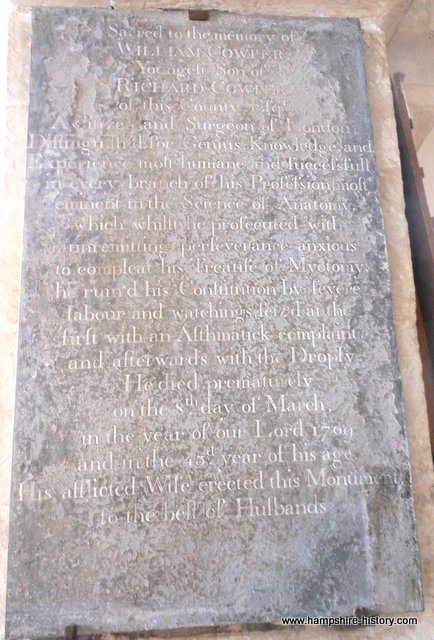 Sacred to the memory of
WILLIAM COWPER
Youngeſt Son of
RICHARD COWPER
of this County Eſqr
A Citizen and Surgeon of London
Diſtinguiſh'd for Genius, Knowledge, and
Experience moſt humane and ſucceſsfull
in every branch of his Profeſsion, moſt
eminent in the Science of Anatomy,
which whilſt he proſecuted with
unremitting perſeverance anxious
to compleat his Treatiſe of Myotomy,
he ruin'd his Conſtitution by ſevere
labour and watchings, ſeiz'd at the
firſt with an Aſthmatick complaint
and afterwards with the Dropſy.
He died prematurely
on the 8th day of March,
in the year of our Lord 1709
and in the 43d year of his age
His afflicted Wife erected this Monument
to the beſt of Huſbands
www.hampshire-history.com